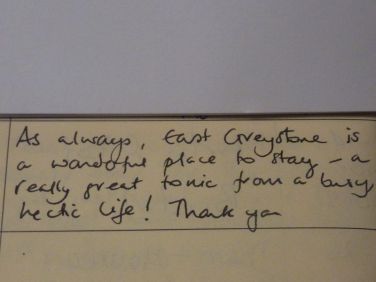 As always, East Greystone is
a wonderful place to stay – a
really great tonic from a busy,
hectic life! Thank you